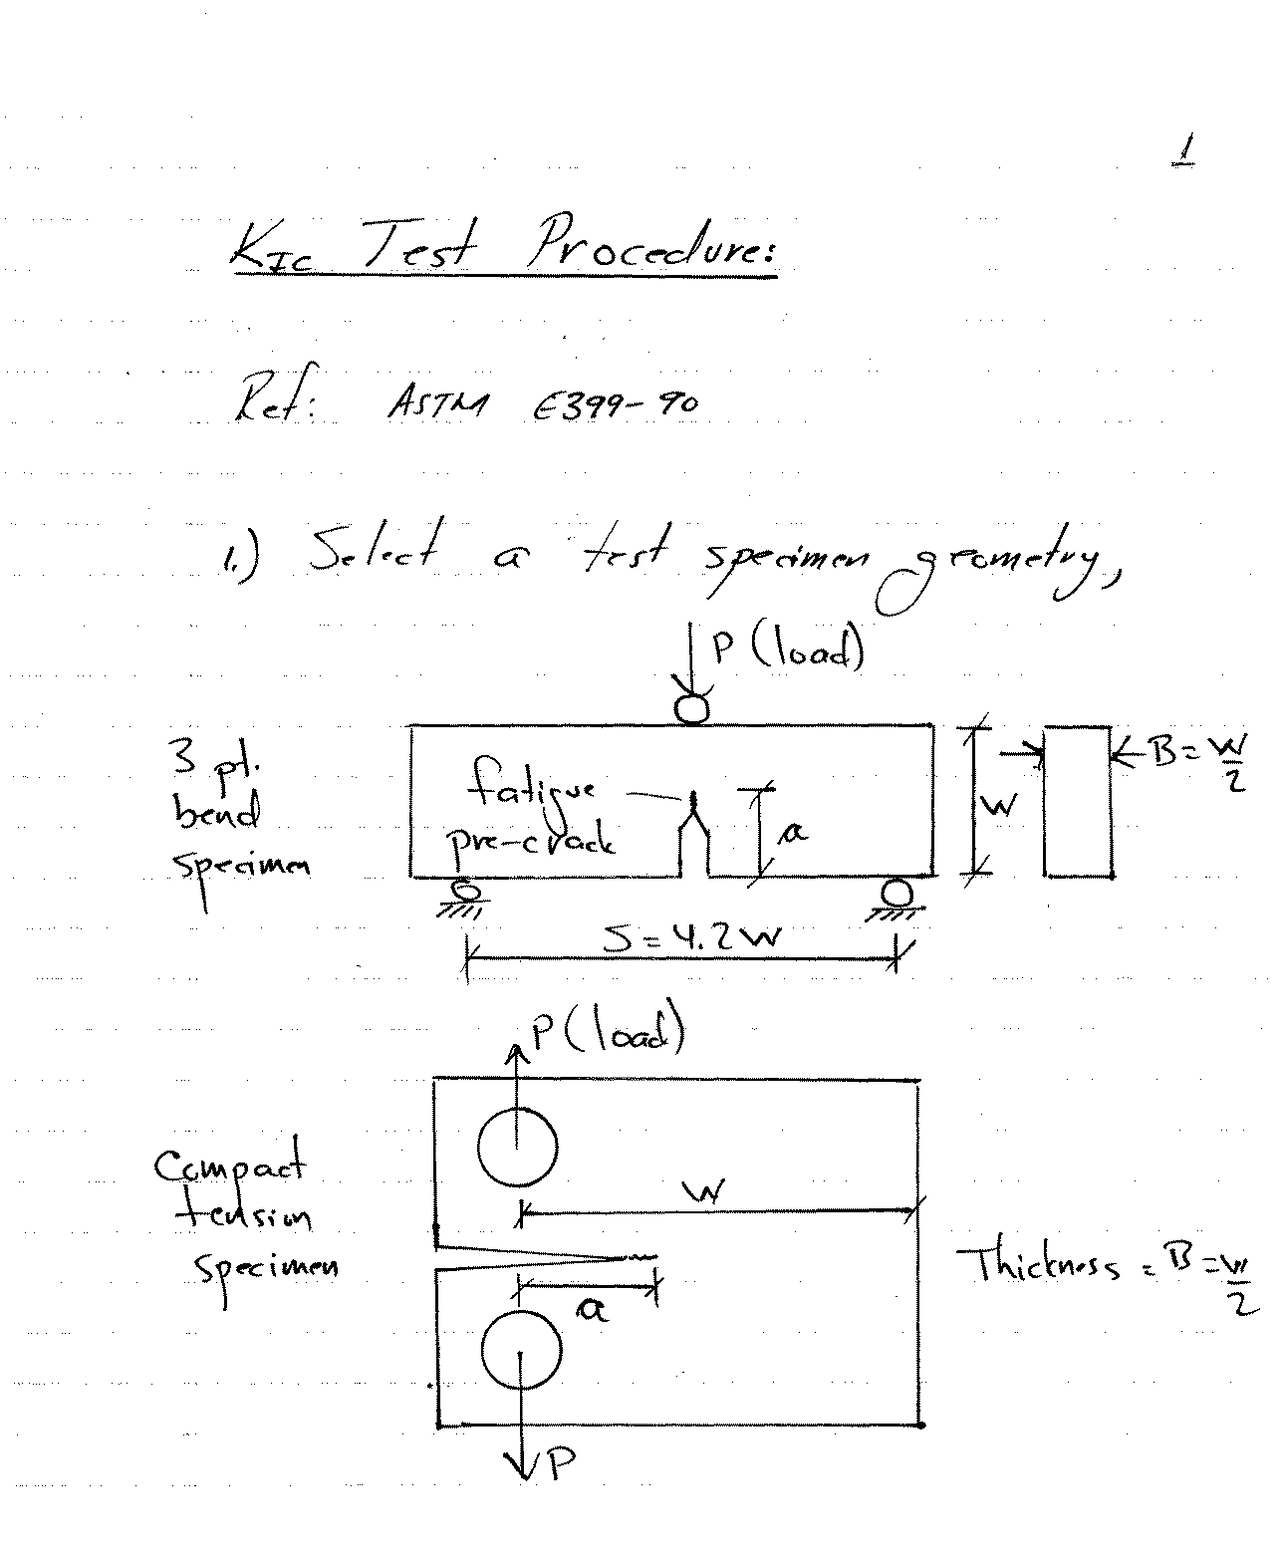 1
K_Ic Test Procedure:
Ref: ASTM E399-90
1.) Select a test specimen geometry,
P (load)
3 pt.
bend
specimen
fatigue
pre-crack
a
W
B = W/2
S = 4.2W
P (load)
Compact
tension
specimen
W
a
Thickness = B = W/2
P